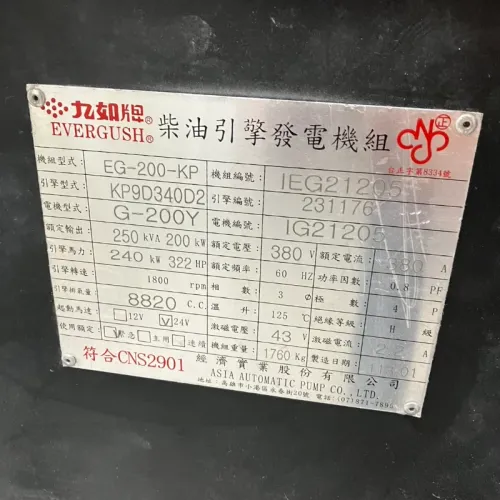 九如牌® EVERGUSH® 柴油引擎發電機組 正
台正字第8334號
機組型式: EG-200-KP 機組編號: IEG21205
引擎型式: KP9D340D2 引擎編號: 231176
電機型式: G-200Y 電機編號: IG21205
額定輸出: 250 kVA 200 kW 額定電壓: 380 V 額定電流: 380 A
引擎馬力: 240 kW 322 HP 額定頻率: 60 HZ 功率因數: 0.8 PF
引擎轉速: 1800 rpm 相數: 3 ø 極數: 4 P
引擎排氣量: 8820 C.C. 溫升: 125 ℃ 絕緣等級: H 級
起動馬達: 12V 24V 激磁電壓: 43 V 激磁電流: 2.2 A
使用額定: 緊急 主用 連續 機組重量: 1760 Kg 製造日期:
符合CNS2901 經濟實業股份有限公司
ASIA AUTOMATIC PUMP CO., LTD.
地址: 高雄市小港區永春街20號 電話: